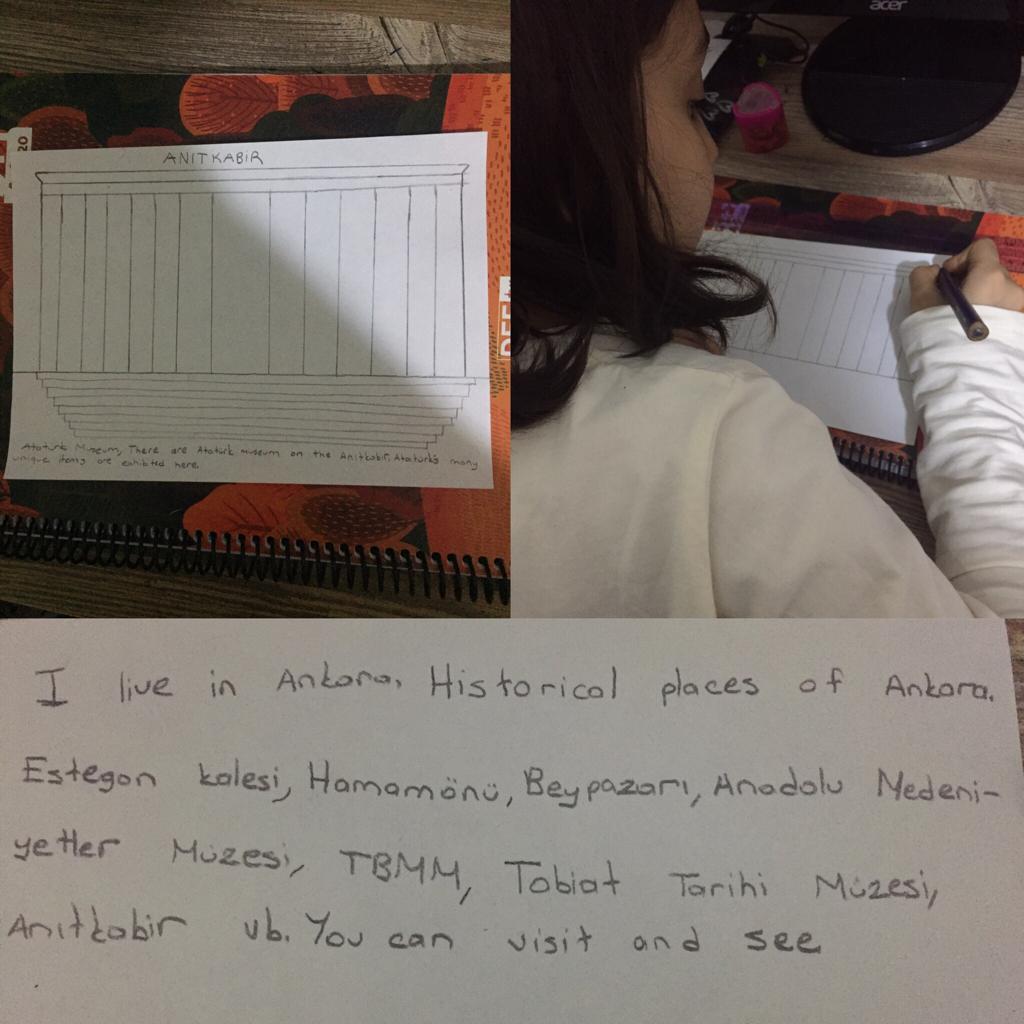 ANITKABİR
Atatürk Museum, There are Atatürk museum on the Anıtkabir, Atatürk's many
unique items are exhibited here.
acer
I live in Ankara. Historical places of Ankara.
Estegon kalesi, Hamamönü, Beypazarı, Anadolu Medeni-
yetler Müzesi, TBMM, Tabiat Tarihi Müzesi,
Anıtkabir vb. You can visit and see